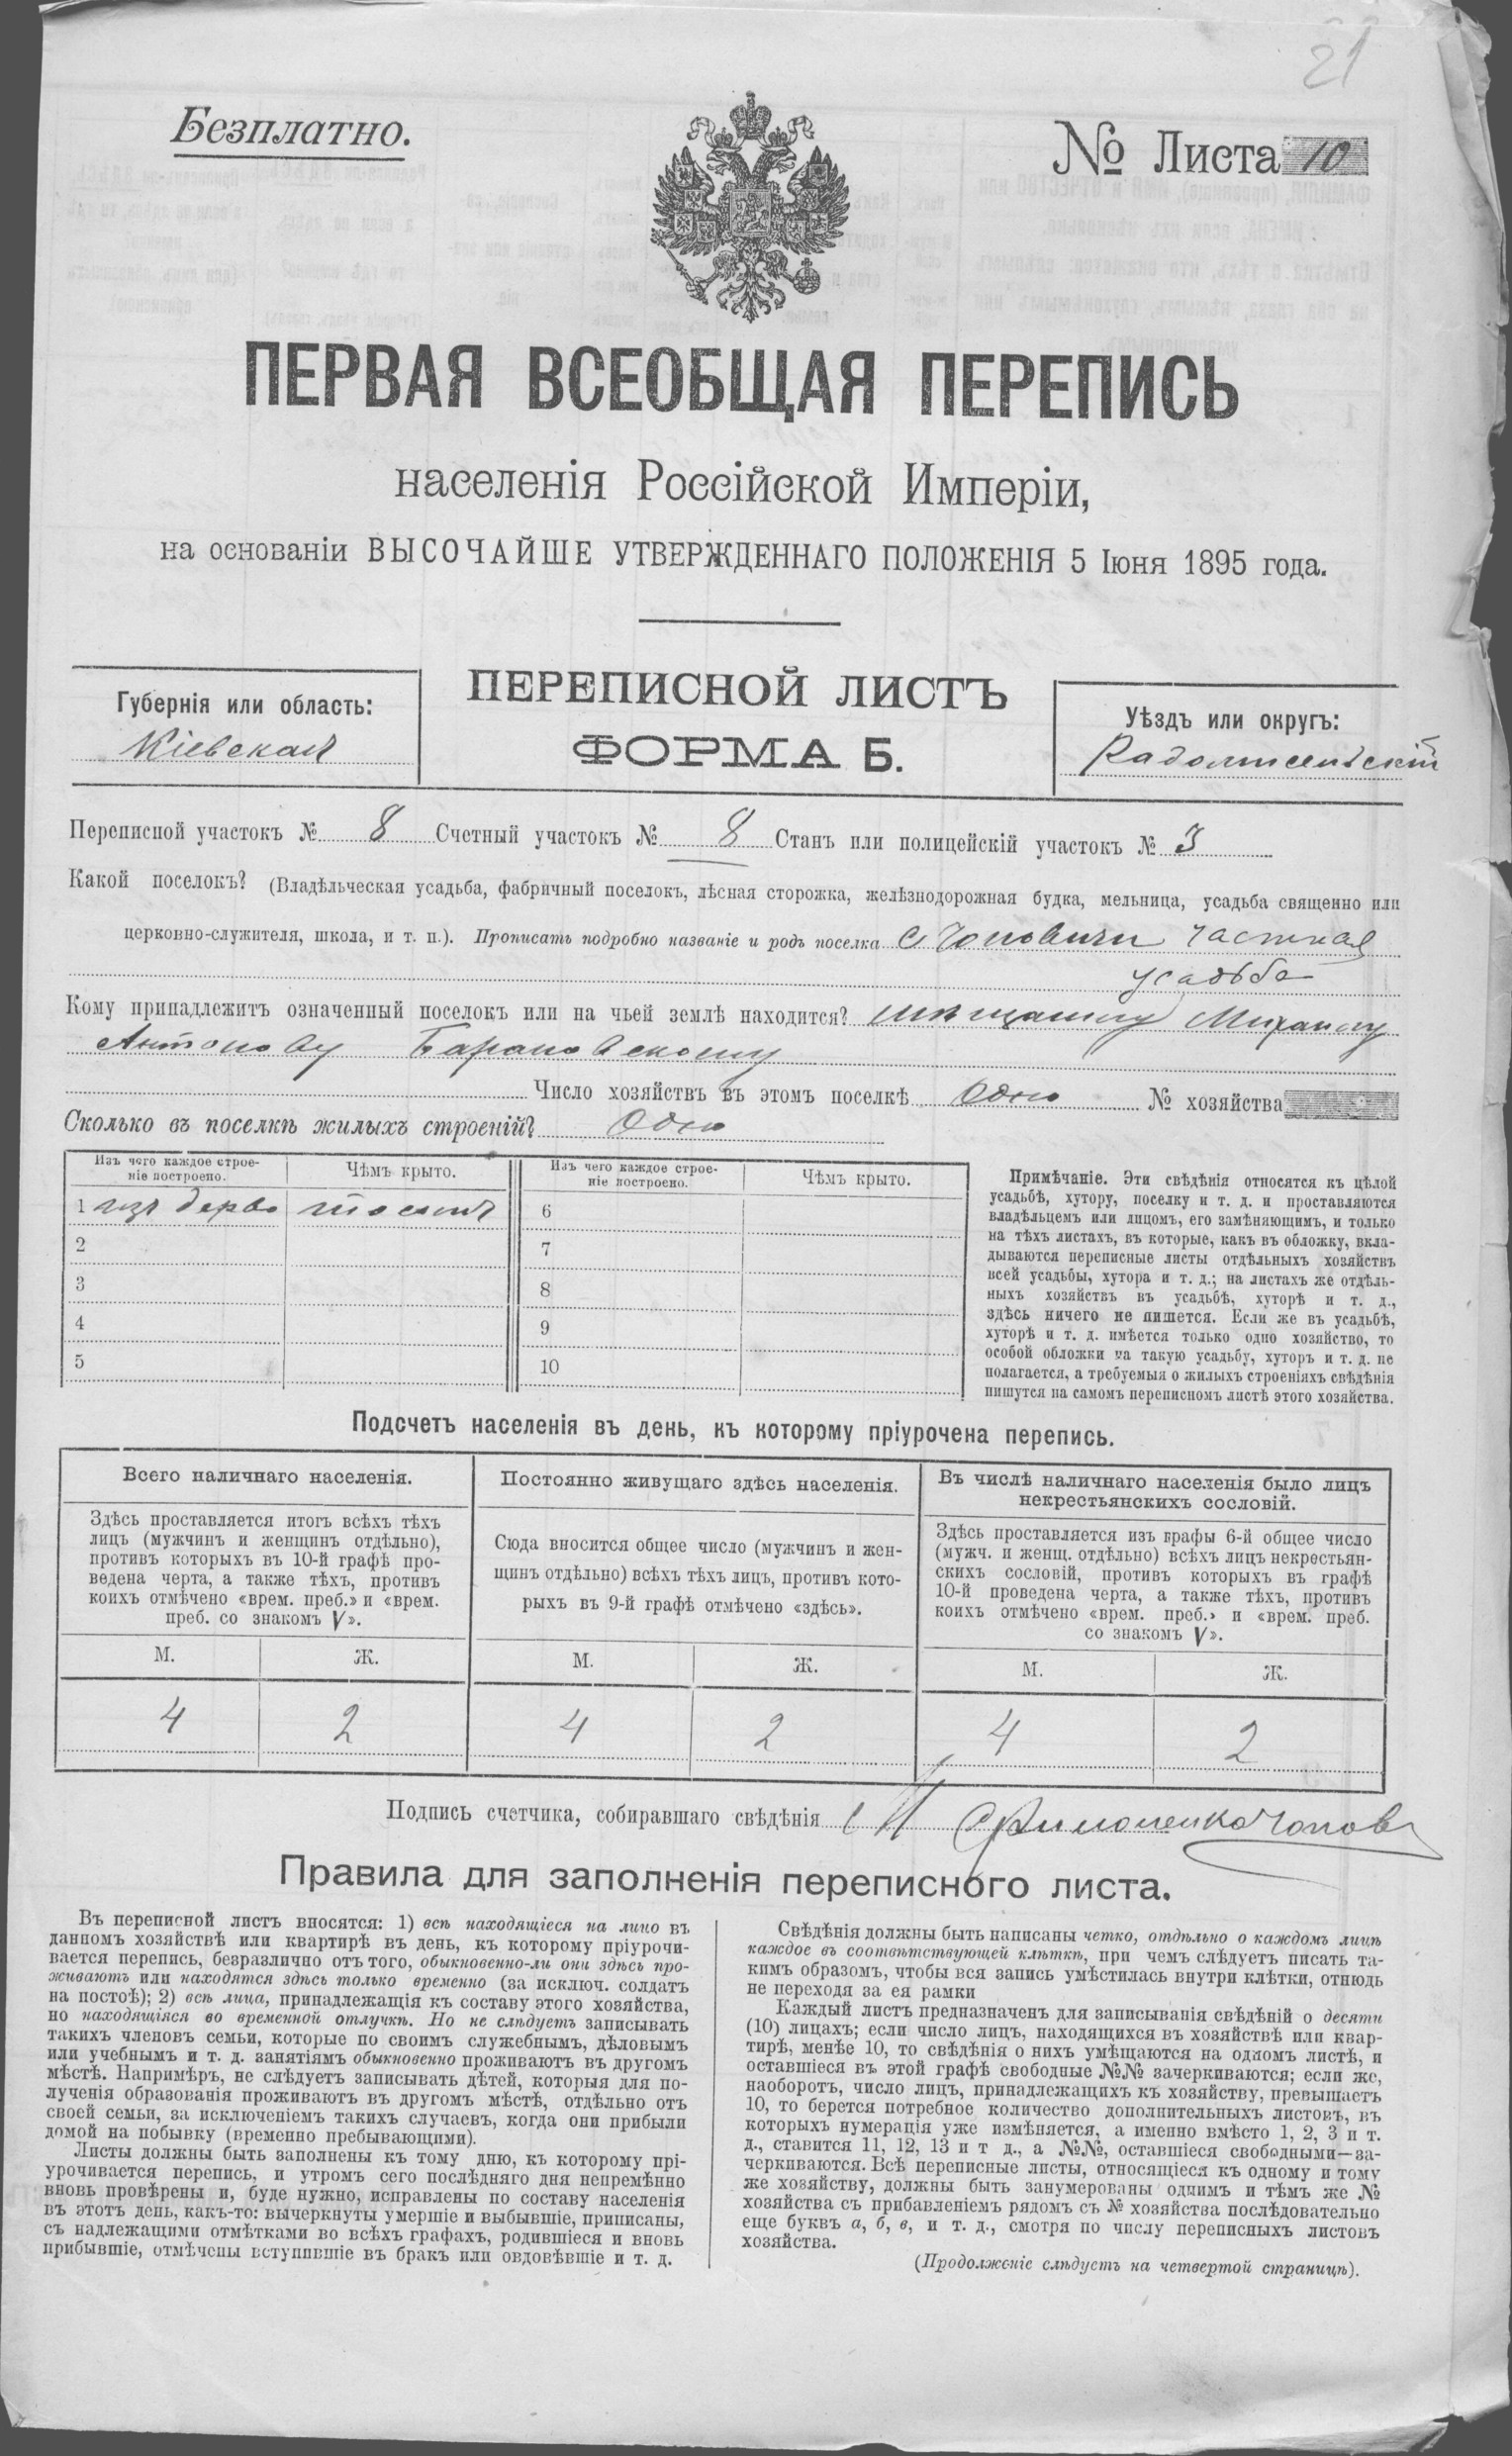 21
Безплатно.
№ Листа 10
ПЕРВАЯ ВСЕОБЩАЯ ПЕРЕПИСЬ
населенія Россійской Имперіи,
на основаніи ВЫСОЧАЙШЕ УТВЕРЖДЕННАГО ПОЛОЖЕНІЯ 5 Іюня 1895 года.
ПЕРЕПИСНОЙ ЛИСТЪ
ФОРМА Б.
Губернія или область:
Кіевская
Уѣздъ или округъ:
Радомысльскій
Переписной участокъ № 8 Счетный участокъ № 8 Станъ или полицейскій участокъ № 3
Какой поселокъ? (Владѣльческая усадьба, фабричный поселокъ, лѣсная сторожка, желѣзнодорожная будка, мельница, усадьба священно или
церковно-служителя, школа, и т. п.). Прописать подробно названіе и родъ поселка с Чоповичи частная
усадьба
Кому принадлежитъ означенный поселокъ или на чьей землѣ находится? мѣщанину Михаилу
Антонову Барановскому
Число хозяйствъ въ этомъ поселкѣ одно № хозяйства
Сколько въ поселкѣ жилыхъ строеній? Одно
Изъ чего каждое строе-
ніе построено.
Чѣмъ крыто.
Изъ чего каждое строе-
ніе построено.
Чѣмъ крыто.
1 изъ дерво
6
2
7
3
8
4
9
5
10
Примѣчаніе. Эти свѣдѣнія относятся къ цѣлой
усадьбѣ, хутору, поселку и т. д. и проставляются
владѣльцемъ или лицомъ, его замѣняющимъ, и только
на тѣхъ листахъ, въ которые, какъ въ обложку, вкла-
дываются переписные листы отдѣльныхъ хозяйствъ
всей усадьбы, хутора и т. д.; на листахъ же отдѣль-
ныхъ хозяйствъ въ усадьбѣ, хуторѣ и т. д.,
здѣсь ничего не пишется. Если же въ усадьбѣ,
хуторѣ и т. д. имѣется только одно хозяйство, то
особой обложки на такую усадьбу, хуторъ и т. д. не
полагается, а требуемыя о жилыхъ строеніяхъ свѣдѣнія
пишутся на самомъ переписномъ листѣ этого хозяйства.
Подсчетъ населенія въ день, къ которому пріурочена перепись.
Всего наличнаго населенія.
Здѣсь проставляется итогъ всѣхъ тѣхъ
лицъ (мужчинъ и женщинъ отдѣльно),
противъ которыхъ въ 10-й графѣ про-
ведена черта, а также тѣхъ, противъ
коихъ отмѣчено «врем. преб.» и «врем.
преб. со знакомъ V».
Постоянно живущаго здѣсь населенія.
Сюда вносится общее число (мужчинъ и жен-
щинъ отдѣльно) всѣхъ тѣхъ лицъ, противъ кото-
рыхъ въ 9-й графѣ отмѣчено «здѣсь».
Въ числѣ наличнаго населенія было лицъ
некрестьянскихъ сословій.
Здѣсь проставляется изъ графы 6-й общее число
(мужч. и женщ. отдѣльно) всѣхъ лицъ некрестьян-
скихъ сословій, противъ которыхъ въ графѣ
10-й проведена черта, а также тѣхъ, противъ
коихъ отмѣчено «врем. преб.» и «врем. преб.
со знакомъ V».
М. Ж. М. Ж. М. Ж.
4 2 4 2 4 2
Подпись счетчика, собиравшаго свѣдѣнія
Правила для заполненія переписного листа.
Въ переписной листъ вносятся: 1) всѣ находящіеся на лицо въ
данномъ хозяйствѣ или квартирѣ въ день, къ которому пріурочи-
вается перепись, безразлично отъ того, обыкновенно-ли они здѣсь про-
живаютъ или находятся здѣсь только временно (за исключ. солдатъ
на постоѣ); 2) всѣ лица, принадлежащія къ составу этого хозяйства,
но находящіяся во временной отлучкѣ. Но не слѣдуетъ записывать
такихъ членовъ семьи, которые по своимъ служебнымъ, дѣловымъ
или учебнымъ и т. д. занятіямъ обыкновенно проживаютъ въ другомъ
мѣстѣ. Напримѣръ, не слѣдуетъ записывать дѣтей, которыя для по-
лученія образованія проживаютъ въ другомъ мѣстѣ, отдѣльно отъ
своей семьи, за исключеніемъ такихъ случаевъ, когда они прибыли
домой на побывку (временно пребывающими).
Листы должны быть заполнены къ тому дню, къ которому прі-
урочивается перепись, и утромъ сего послѣдняго дня непремѣнно
вновь провѣрены и, буде нужно, исправлены по составу населенія
въ этотъ день, какъ-то: вычеркнуты умершіе и выбывшіе, приписаны,
съ надлежащими отмѣтками во всѣхъ графахъ, родившіеся и вновь
прибывшіе, отмѣчены вступившіе въ бракъ или овдовѣвшіе и т. д.
Свѣдѣнія должны быть написаны четко, отдѣльно о каждомъ лицѣ
каждое въ соотвѣтствующей клѣткѣ, при чемъ слѣдуетъ писать та-
кимъ образомъ, чтобы вся запись умѣстилась внутри клѣтки, отнюдь
не переходя за ея рамки
Каждый листъ предназначенъ для записыванія свѣдѣній о десяти
(10) лицахъ; если число лицъ, находящихся въ хозяйствѣ или квар-
тирѣ, менѣе 10, то свѣдѣнія о нихъ умѣщаются на одномъ листѣ, и
оставшіеся въ этой графѣ свободные №№ зачеркиваются; если же,
наоборотъ, число лицъ, принадлежащихъ къ хозяйству, превышаетъ
10, то берется потребное количество дополнительныхъ листовъ, въ
которыхъ нумерація уже измѣняется, а именно вмѣсто 1, 2, 3 и т.
д., ставится 11, 12, 13 и т д., а №№, оставшіеся свободными—за-
черкиваются. Всѣ переписные листы, относящіеся къ одному и тому
же хозяйству, должны быть занумерованы однимъ и тѣмъ же №
хозяйства съ прибавленіемъ рядомъ съ № хозяйства послѣдовательно
еще буквъ а, б, в, и т. д., смотря по числу переписныхъ листовъ
хозяйства.
(Продолженіе слѣдуетъ на четвертой страницѣ).